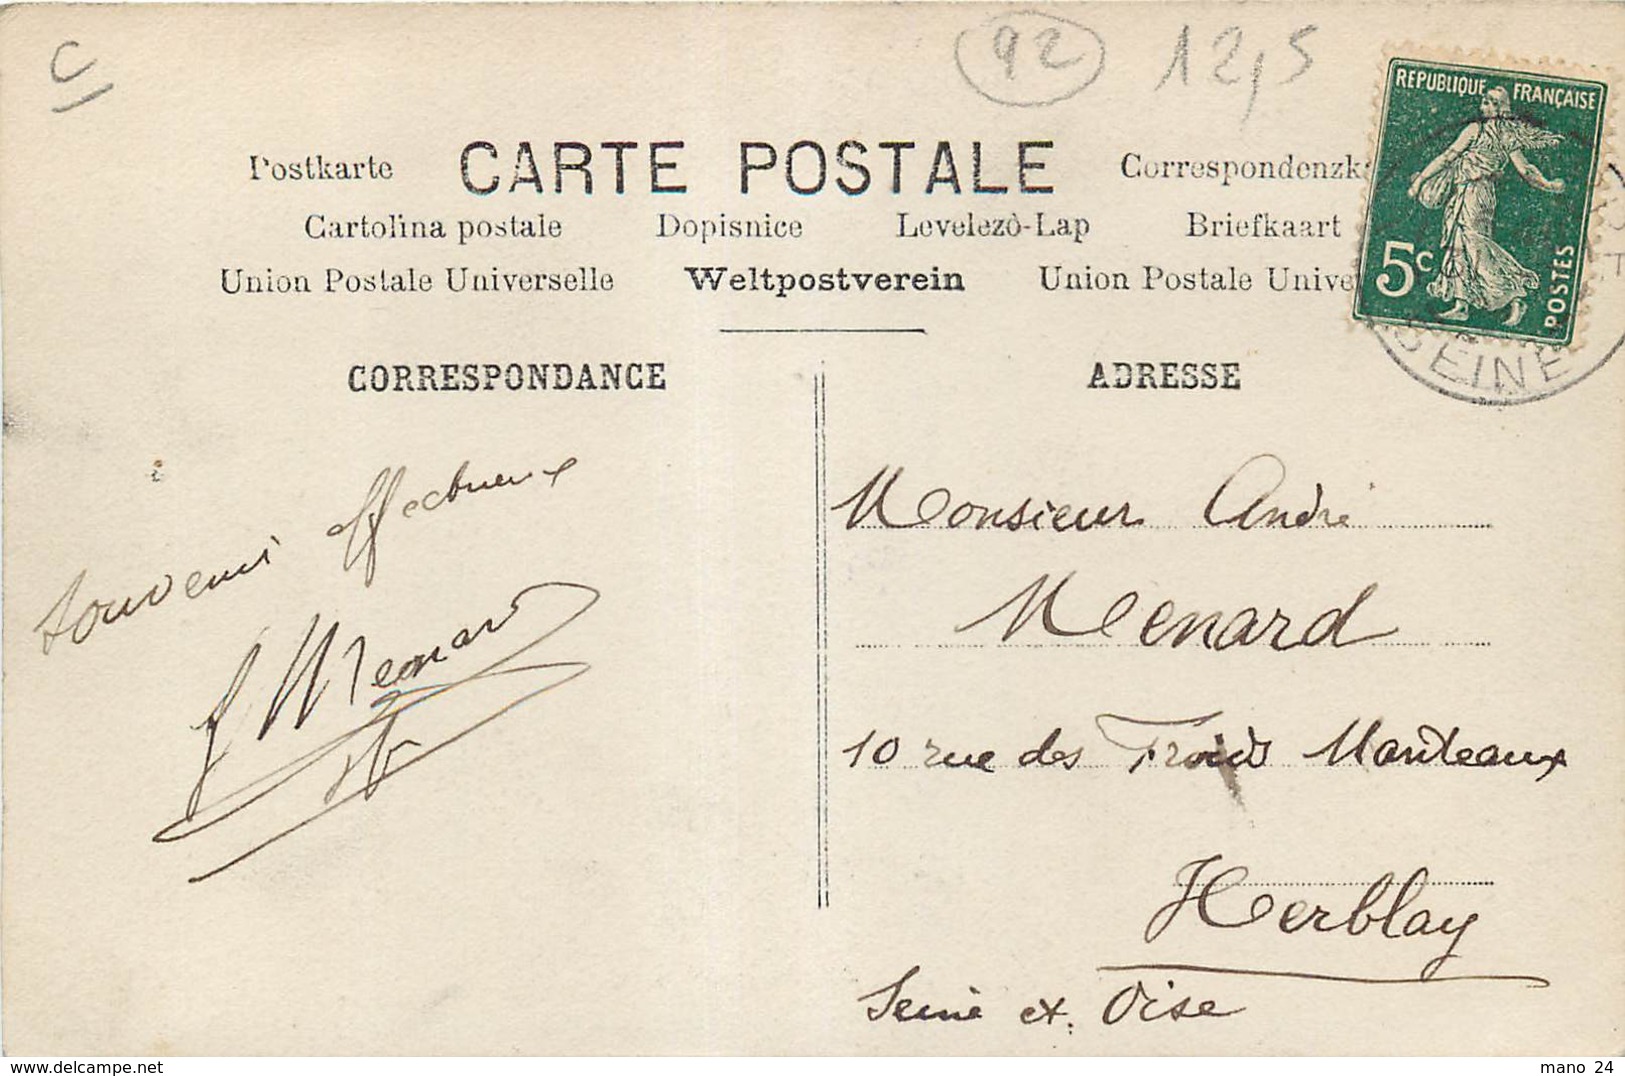 C
92
12,5
REPUBLIQUE FRANÇAISE
5c
POSTES
SEINE
Postkarte CARTE POSTALE Correspondenzk
Cartolina postale Dopisnice Levelezò-Lap Briefkaart
Union Postale Universelle Weltpostverein Union Postale Unive
CORRESPONDANCE
ADRESSE
Souvenir affectueux
Menard
Monsieur André
Menard
10 rue des Trois Manteaux
Herblay
Seine et Oise
mano 24